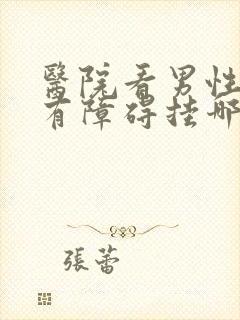 醫院看男性
有障碍挂哪
張蕾